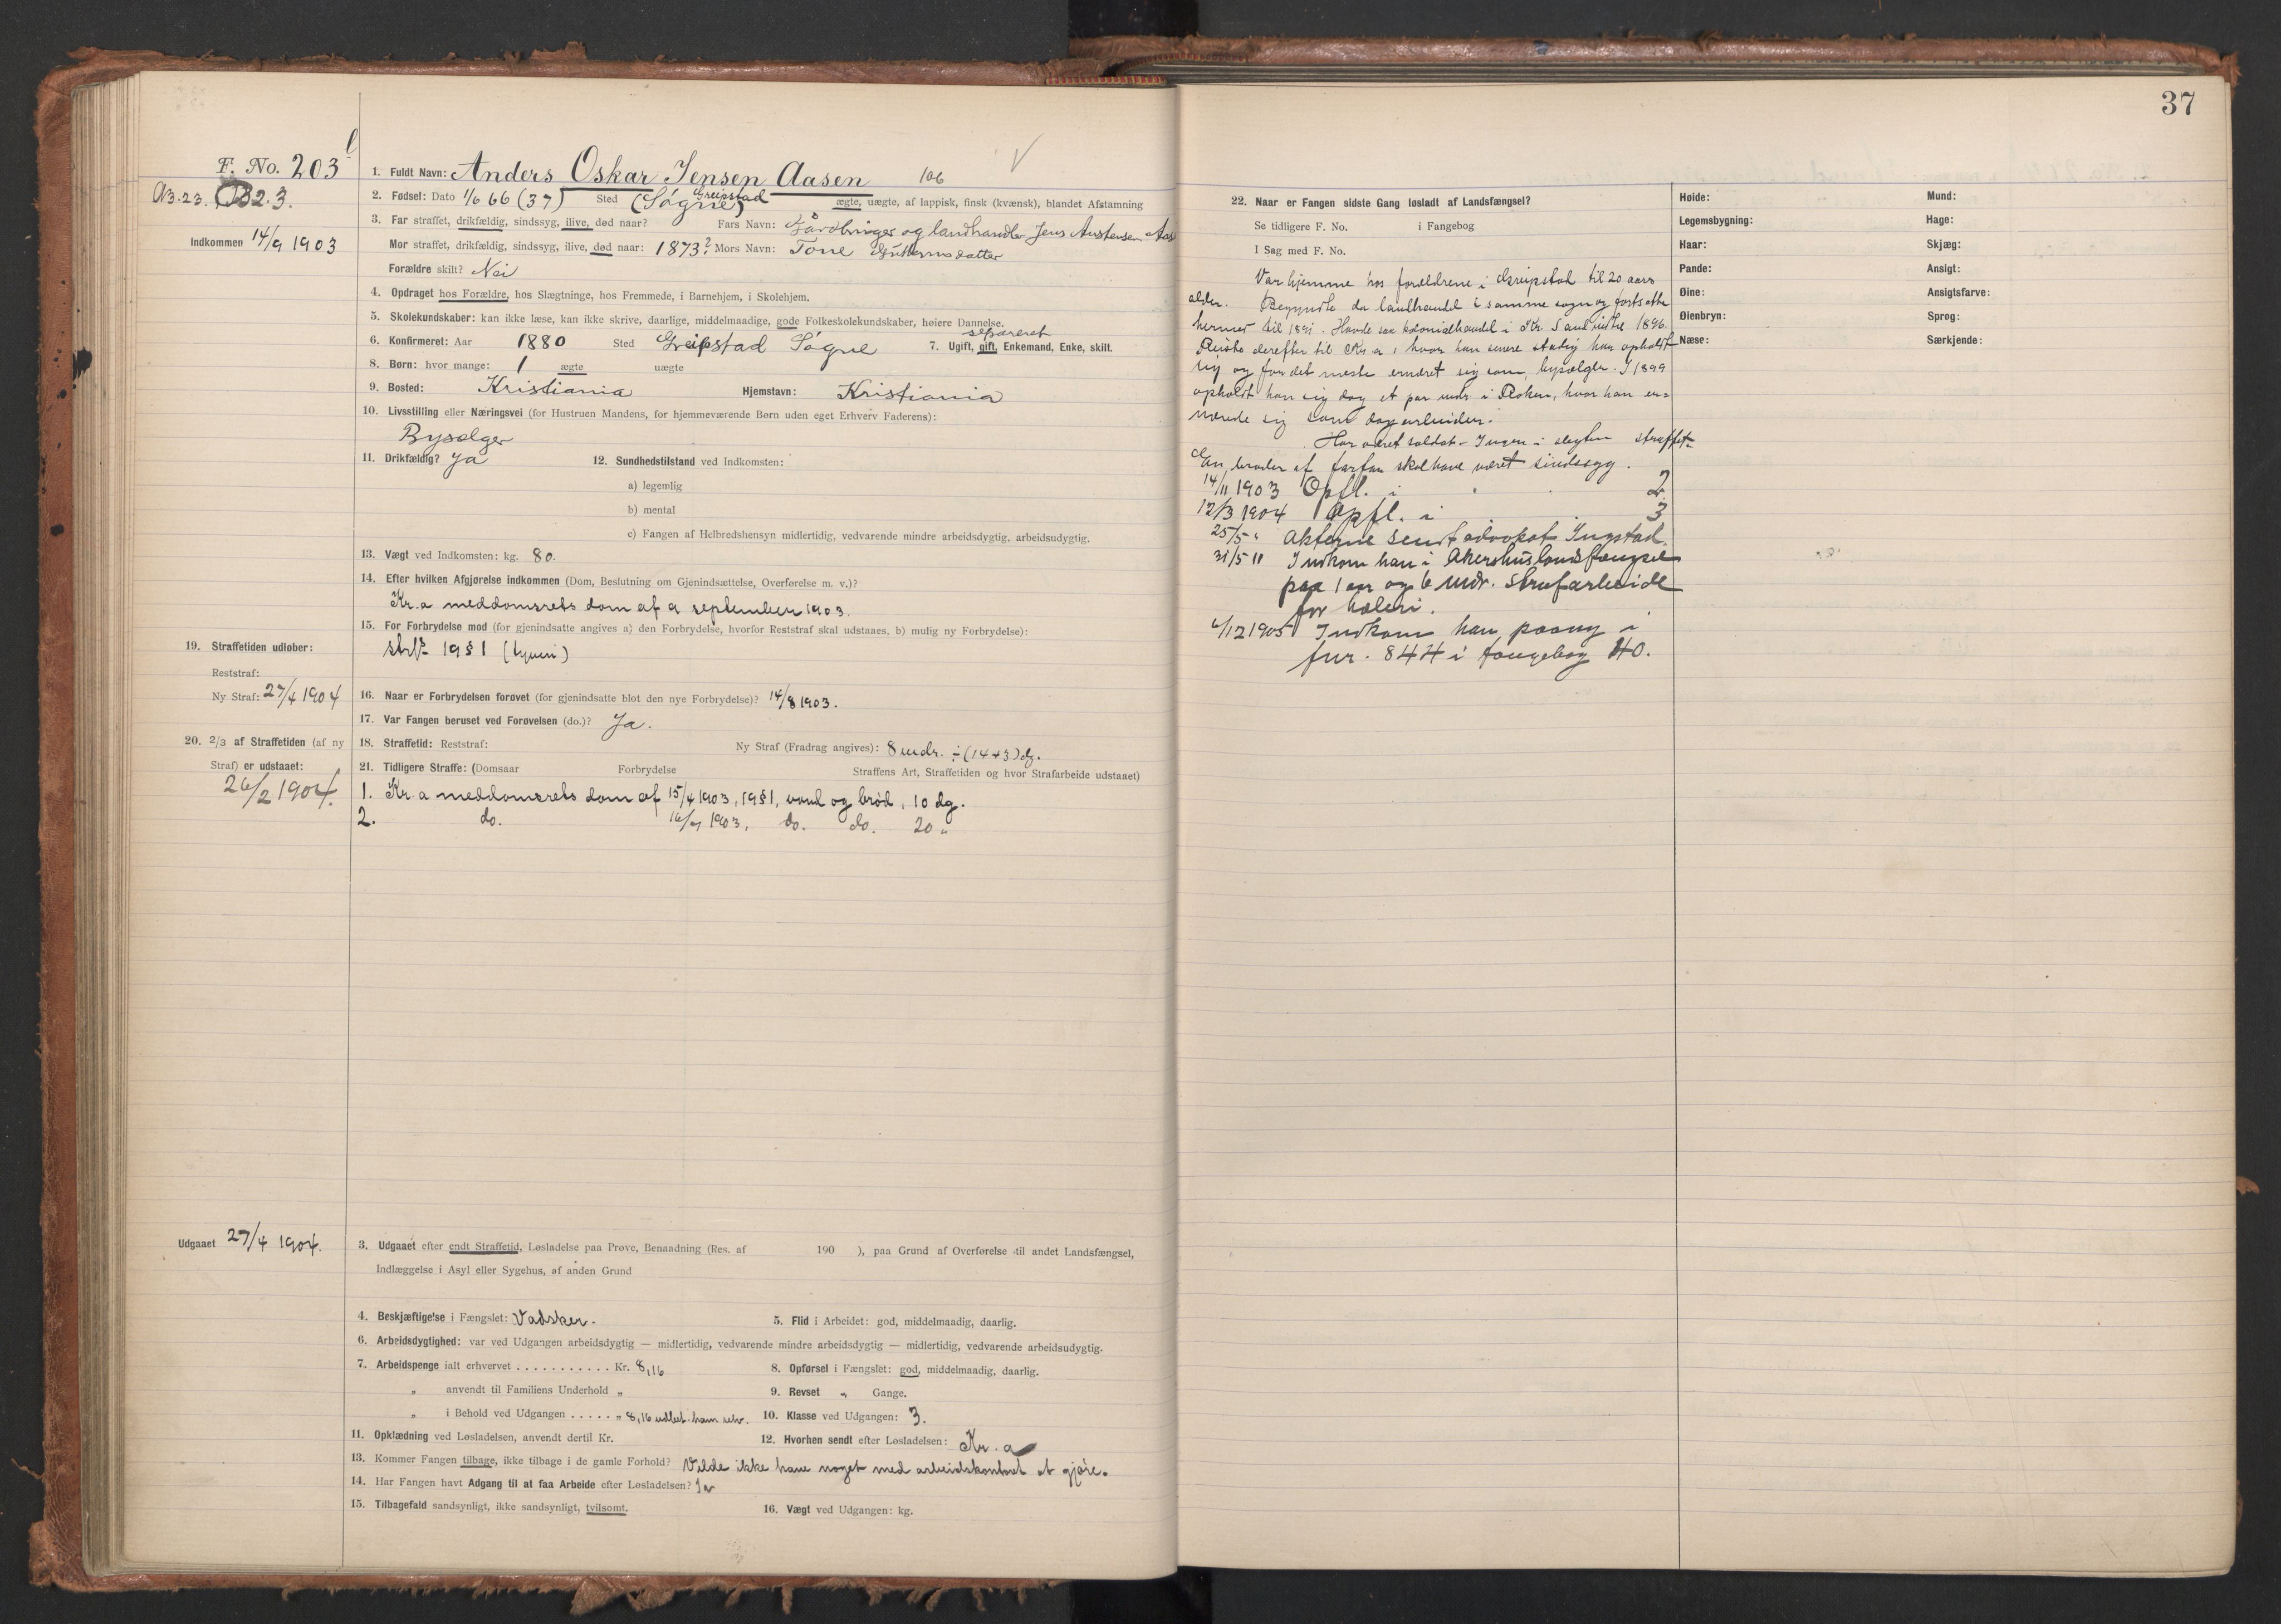 37
F. No. 203
A3.23. B2.3.
Indkommen 14/9 1903
1. Fuldt Navn: Anders Oskar Jensen Aasen 106
2. Fødsel: Dato 1/6 66 (37) Sted (Søgne) Greipstad ægte, uægte, af lappisk, finsk (kvænsk), blandet Afstamning
3. Far straffet, drikfældig, sindssyg, ilive, død naar? Fars Navn: Gårdbruger og landhandler Jens Austensen Aas
Mor straffet, drikfældig, sindssyg, ilive, død naar: 1873? Mors Navn: Tone Guttormsdatter
Forældre skilt? Nei
4. Opdraget hos Forældre, hos Slægtninge, hos Fremmede, i Barnehjem, i Skolehjem.
5. Skolekundskaber: kan ikke læse, kan ikke skrive, daarlige, middelmaadige, gode Folkeskolekundskaber, høiere Dannelse.
separeret
6. Konfirmeret: Aar 1880 Sted Greipstad Søgne 7. Ugift, gift, Enkemand, Enke, skilt.
8. Børn: hvor mange: 1 ægte uægte
9. Bosted: Kristiania Hjemstavn: Kristiania
10. Livsstilling eller Næringsvei (for Hustruen Mandens, for hjemmeværende Børn uden eget Erhverv Faderens):
Bysælger
11. Drikfældig? Ja 12. Sundhedstilstand ved Indkomsten:
a) legemlig
b) mental
c) Fangen af Helbredshensyn midlertidig, vedvarende mindre arbeidsdygtig, arbeidsudygtig.
13. Vægt ved Indkomsten: kg. 80.
14. Efter hvilken Afgjørelse indkommen (Dom, Beslutning om Gjenindsættelse, Overførelse m. v.)?
Kr.a meddomsrets dom af 9 september 1903.
15. For Forbrydelse mod (for gjenindsatte angives a) den Forbrydelse, hvorfor Reststraf skal udstaaes, b) mulig ny Forbrydelse):
19 § 1 (tyveri)
19. Straffetiden udløber:
Reststraf:
Ny Straf: 27/4 1904
16. Naar er Forbrydelsen forøvet (for gjenindsatte blot den nye Forbrydelse)? 14/8 1903.
17. Var Fangen beruset ved Forøvelsen (do.)? Ja.
20. 2/3 af Straffetiden (af ny
Straf) er udstaaet:
26/2 1904.
18. Straffetid: Reststraf: Ny Straf (Fradrag angives): 8 mdr. ÷ (14+3) dg.
21. Tidligere Straffe: (Domsaar Forbrydelse Straffens Art, Straffetiden og hvor Strafarbeide udstaaet)
1. Kr.a meddomsrets dom af 15/4 1903, 19 § 1, vand og brød, 10 dg.
2. do. 1903, do. do. 20 "
Udgaaet 27/4 1904.
3. Udgaaet efter endt Straffetid, Løsladelse paa Prøve, Benaadning (Res. af 190 ), paa Grund af Overførelse til andet Landsfængsel,
Indlæggelse i Asyl eller Sygehus, af anden Grund
4. Beskjæftigelse i Fængslet: Vadsker. 5. Flid i Arbeidet: god, middelmaadig, daarlig.
6. Arbeidsdygtighed: var ved Udgangen arbeidsdygtig — midlertidig, vedvarende mindre arbeidsdygtig — midlertidig, vedvarende arbeidsudygtig.
7. Arbeidspenge ialt erhvervet . . . . . . . . . . . Kr. 8,16 8. Opførsel i Fængslet: god, middelmaadig, daarlig.
" anvendt til Familiens Underhold " 9. Revset " Gange.
" i Behold ved Udgangen . . . . . " 8,16 udbet. ham selv. 10. Klasse ved Udgangen: 3.
11. Opklædning ved Løsladelsen, anvendt dertil Kr. 12. Hvorhen sendt efter Løsladelsen: Kr.a
13. Kommer Fangen tilbage, ikke tilbage i de gamle Forhold? Vilde ikke have noget med arbeidskontoret at gjøre.
14. Har Fangen havt Adgang til at faa Arbeide efter Løsladelsen? Ja
15. Tilbagefald sandsynligt, ikke sandsynligt, tvilsomt. 16. Vægt ved Udgangen: kg.
22. Naar er Fangen sidste Gang løsladt af Landsfængsel?
Se tidligere F. No. i Fangebog
I Sag med F. No.
Var hjemme hos forældrene i Greipstad til 20 aars
alder. Begyndte da landhandel i samme sogn og fortsatte
hermed til 1891. Havde saa kolonialhandel i Kr. Sand indtil 1896.
Reiste derefter til Kr.a, hvor han senere stadig har opholdt
sig og for det meste ernæret sig som bysælger. I 1899
opholdt han sig dog et par mdr. i Røken, hvor han er=
nærede sig som dagarbeider.
Har været soldat. Ingen i slegten straffet.
En broder af farfar skal have været sindssyg.
14/11 1903 Opfl. i 2.
12/3 1904 Opfl. i 3
25/5 " Akterne sendt advokat Ingstad.
31/5 " Indkom han i Akershus landsfængsel
paa 1 aar og 6 mdr. strafarbeide
for hæleri.
6/12 1905 Indkom han paany i
fnr. 844 i fangebog 40.
Høide:
Legemsbygning:
Haar:
Pande:
Øine:
Øienbryn:
Næse:
Mund:
Hage:
Skjæg:
Ansigt:
Ansigtsfarve:
Sprog:
Særkjende: